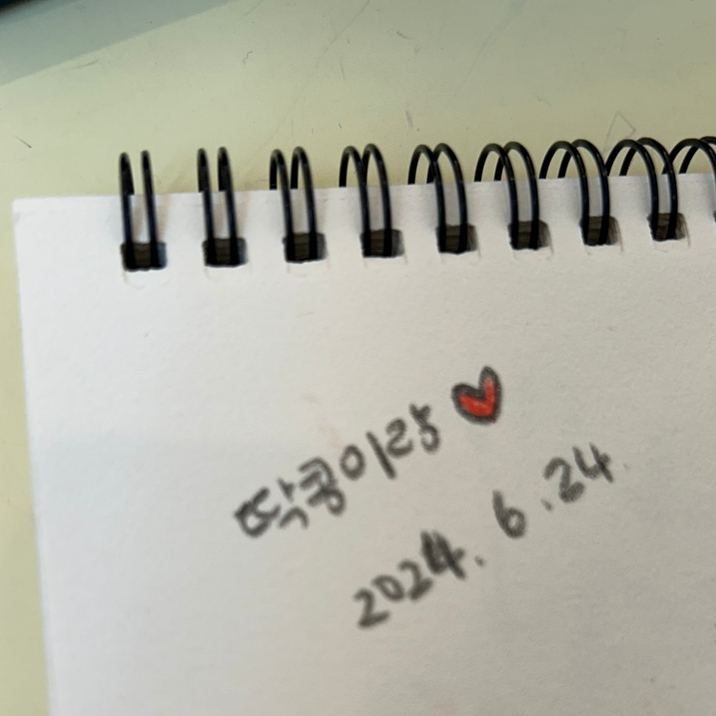 딱콩이랑 ♥
2024. 6. 24